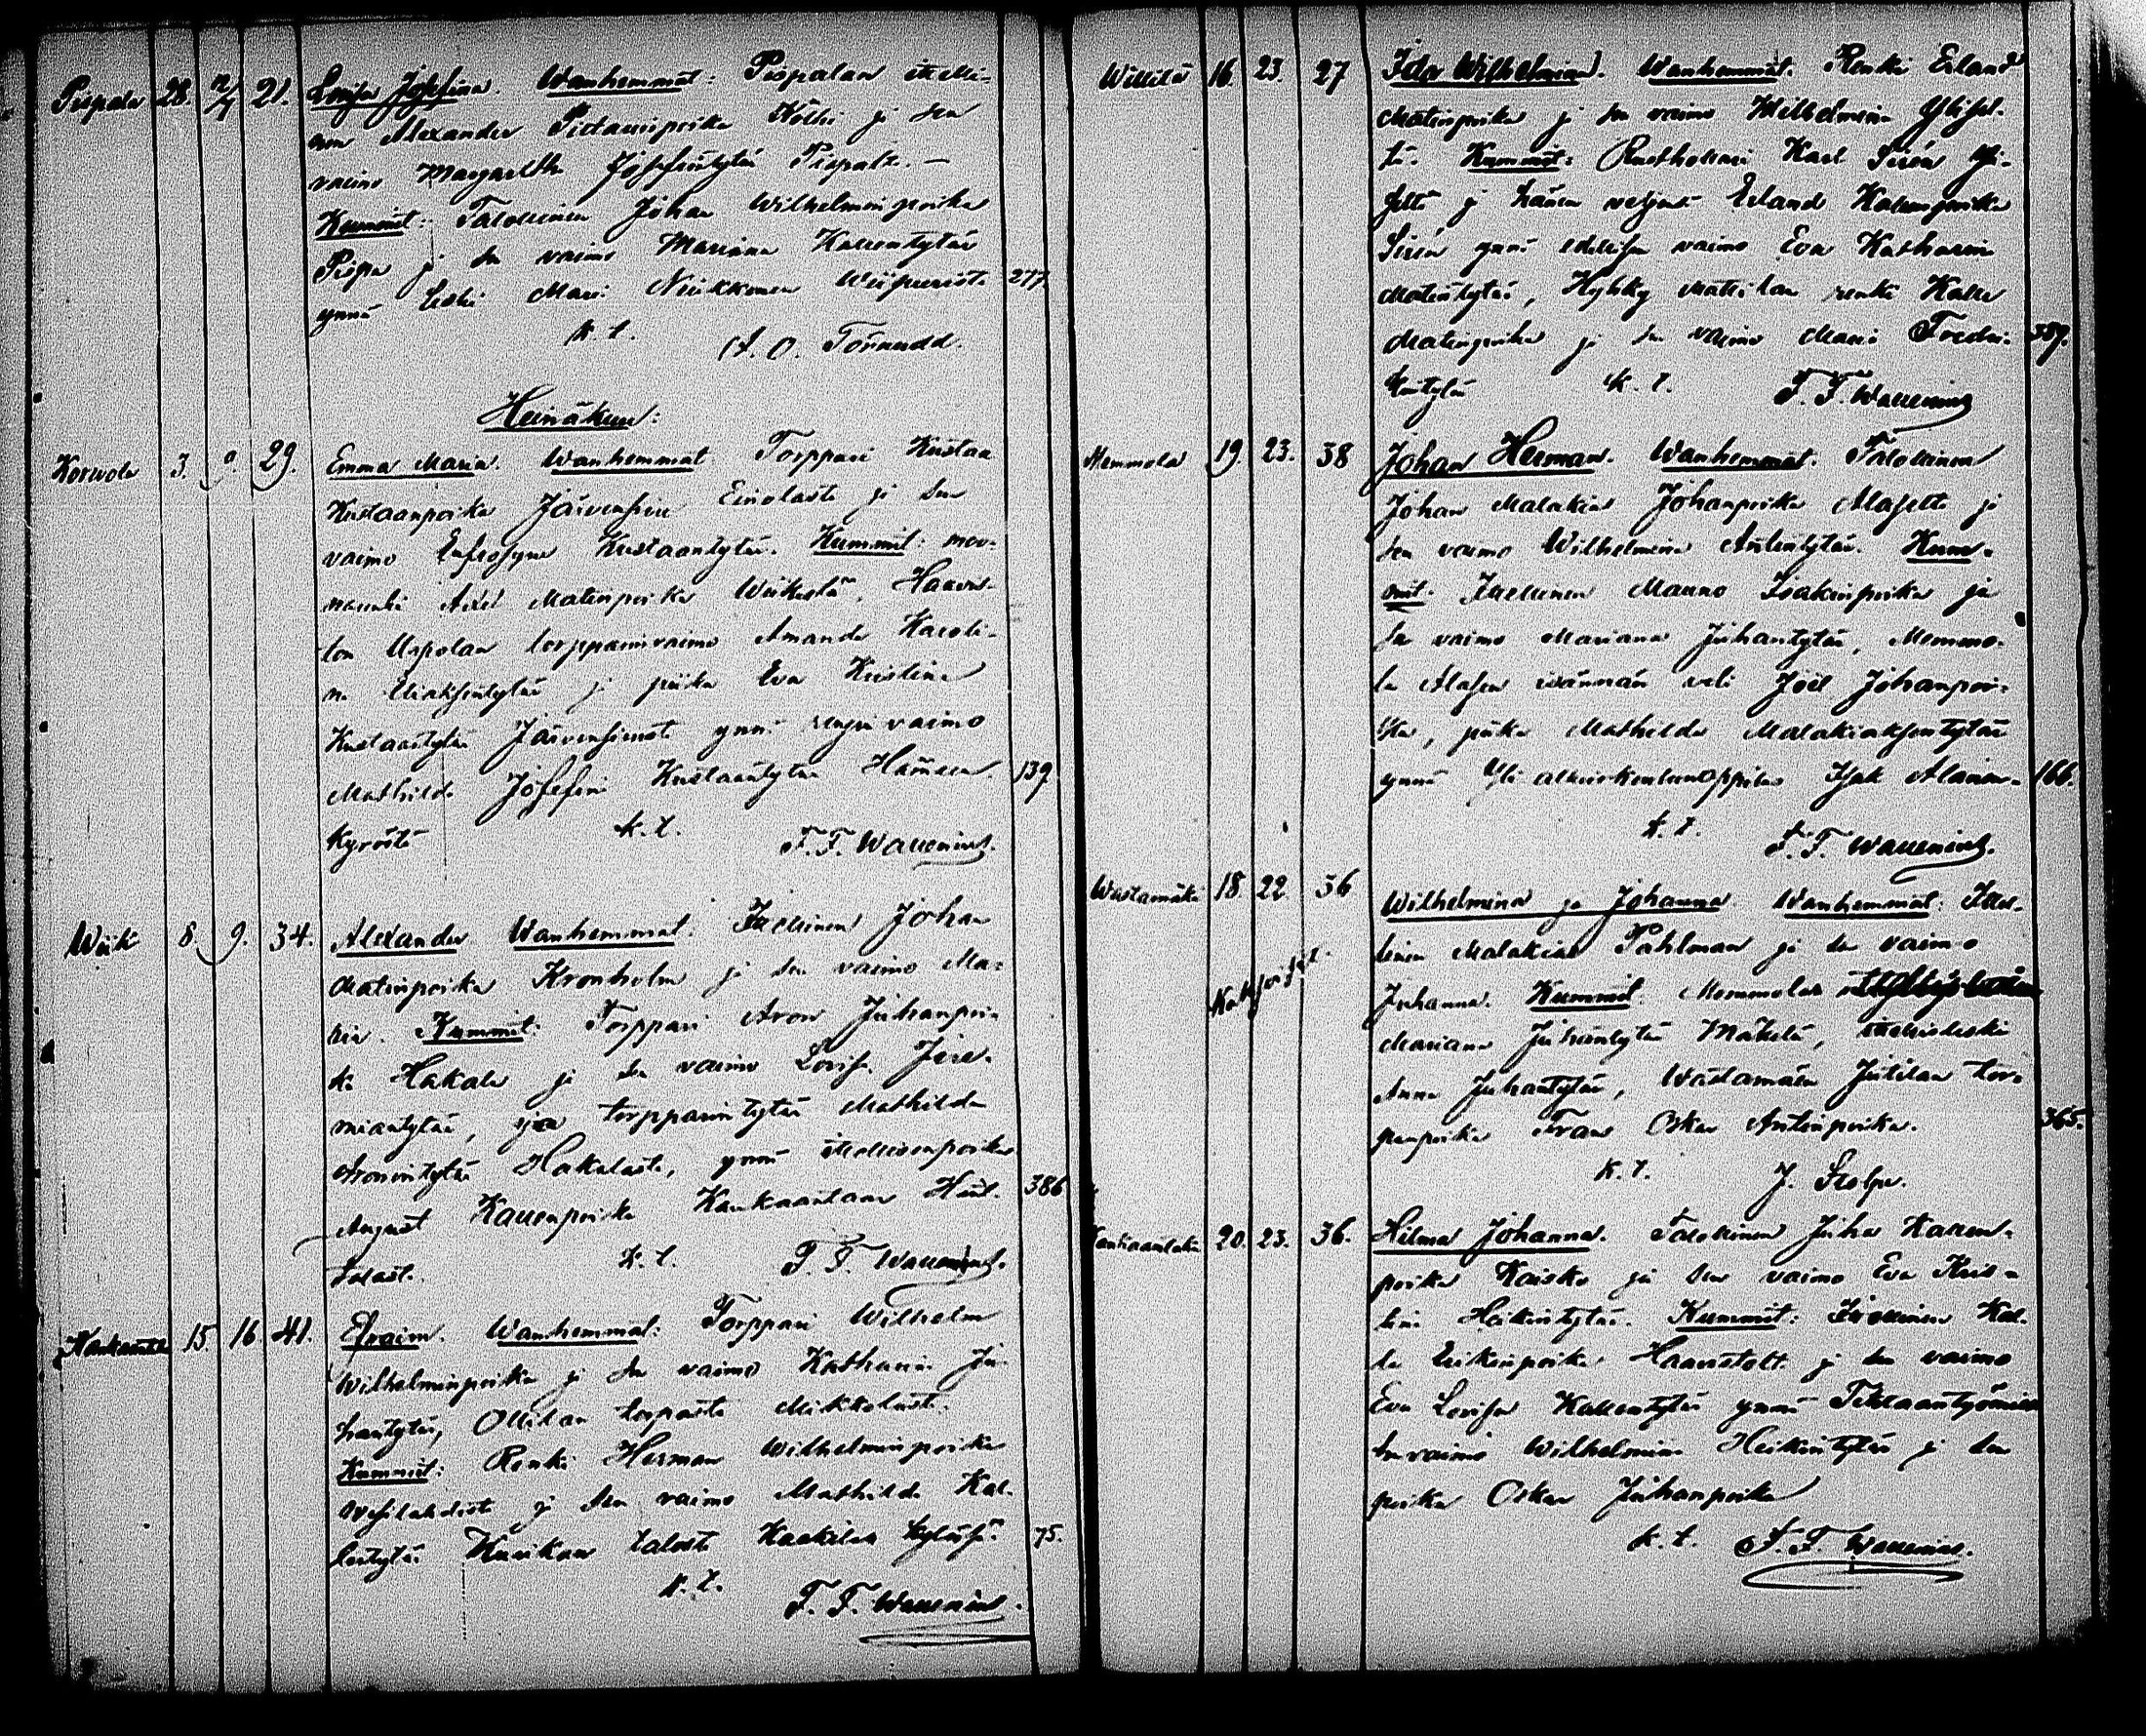 Pispala 28. 12/7 21. Lovisa Josefina. Wanhemmat: Pispalan itselli-
nen Alexander Pietarinpoika Kölhi ja sen
vaimo Margaretha Josefintytär Pispala. —
Kummit: Talollinen Johan Wilhelminpoika
Pispa ja sen vaimo Mariana Kallentytär
ynnä leski Mari Niukkonen Wiipurista 277
k. t. A. O. Törnudd.
Heinäkuu:
Korwola 3. 9. 29. Emma Maria. Wanhemmat Torppari Kustaa
Kustaanpoika Järvensivu Einolasta ja sen
vaimo Eufrosyne Kustaantytär. Kummit:
Axel Matinpoika Wiikistä,
Uspolan torpparinvaimo Amanda Karoli-
na ja piika Eva Kristina
Kustaantytär Järvensivust ynnä rengin vaimo
Mathilda Josefina Kustaantytär Hämeen- 139
kyröstä k. t. F. F. Wallenius.
Wiik 8. 9. 34. Alexander Wanhemmat. Itsellinen Johan
Matinpoika Kronholm ja sen vaimo Ma-
ria. Kummit: Torppari Aron Juhanpoi-
ka Hakala ja sen vaimo Lovisa Jere-
miantytär, torpparintytär Mathilda
Aronintytär Hakalasta, ynnä itsellisenpoika
August Kallenpoika Kankaantaan 386
k. t. F. F. Wallenius.
15. 16 41. Efraim. Wanhemmat: Torppari Wilhelm
Wilhelminpoika ja sen vaimo Katharina Ju-
hantytär, Ollilan torpasta Mikkolasta.
Kummit: Renki Herman Wilhelminpoika
Wesilahdest ja sen vaimo Mathilda Kal-
lentytär talosta kylästä 75.
k. t. F. F. Wallenius.
Willilä 16. 23. 27 Ida Wilhelmina. Wanhemmat. Renki Erland
Matinpoika ja sen vaimo Wilhelmina
Kummit: Rusthollari Karl Sirén
ja hänen veljensä Erland Kallenpoika
Sirén ynnä edellisen vaimo Eva Katharina
Matintytär, Hyhky Mattilan renki Kalle
Matinpoika ja sen vaimo Mari Fredri- 389.
kintytär k. t. F. F. Wallenius
Memmola 19. 23. 38 Johan Herman. Wanhemmat. Talollinen
Johan Malakias Johanpoika ja
sen vaimo Wilhelmina Antintytär. Kum-
mit. Itsellinen Manno Isakinpoika ja
sen vaimo Mariana Juhantytär, Memmo-
la isännän veli Joel Johanpoi-
ka, piika Mathilda Malakiaksentytär
ynnä Isak 166.
k. t. F. F. Wallenius.
Wastamäki 18. 22. 36 Wilhelmina ja Johanna Wanhemmat: Itsel-
linen Malakias Pahlman ja sen vaimo
Kaksoiset. Juhanna. Kummit: Memmolan
Mariana Juhantytär Mäkelä, itsellisleski
Anna Juhantytär, Wastamäen Jutilan tor-
panpoika Frans Oskar Antinpoika. 365.
k. t. J. Stolpe.
Kankaantaka 20. 23. 36. Hilma Johanna. Talollinen Juha Kallen-
poika Kaisko ja sen vaimo Eva Kris-
tina Heikintytär. Kummit: Kal-
le Erikinpoika ja sen vaimo
Eva Lovisa Kallentytär ynnä Tehtaantyömies
sen vaimo Wilhelmina Heikintytär ja sen
poika Oskar Juhanpoika
k. t. F. F. Wallenius.